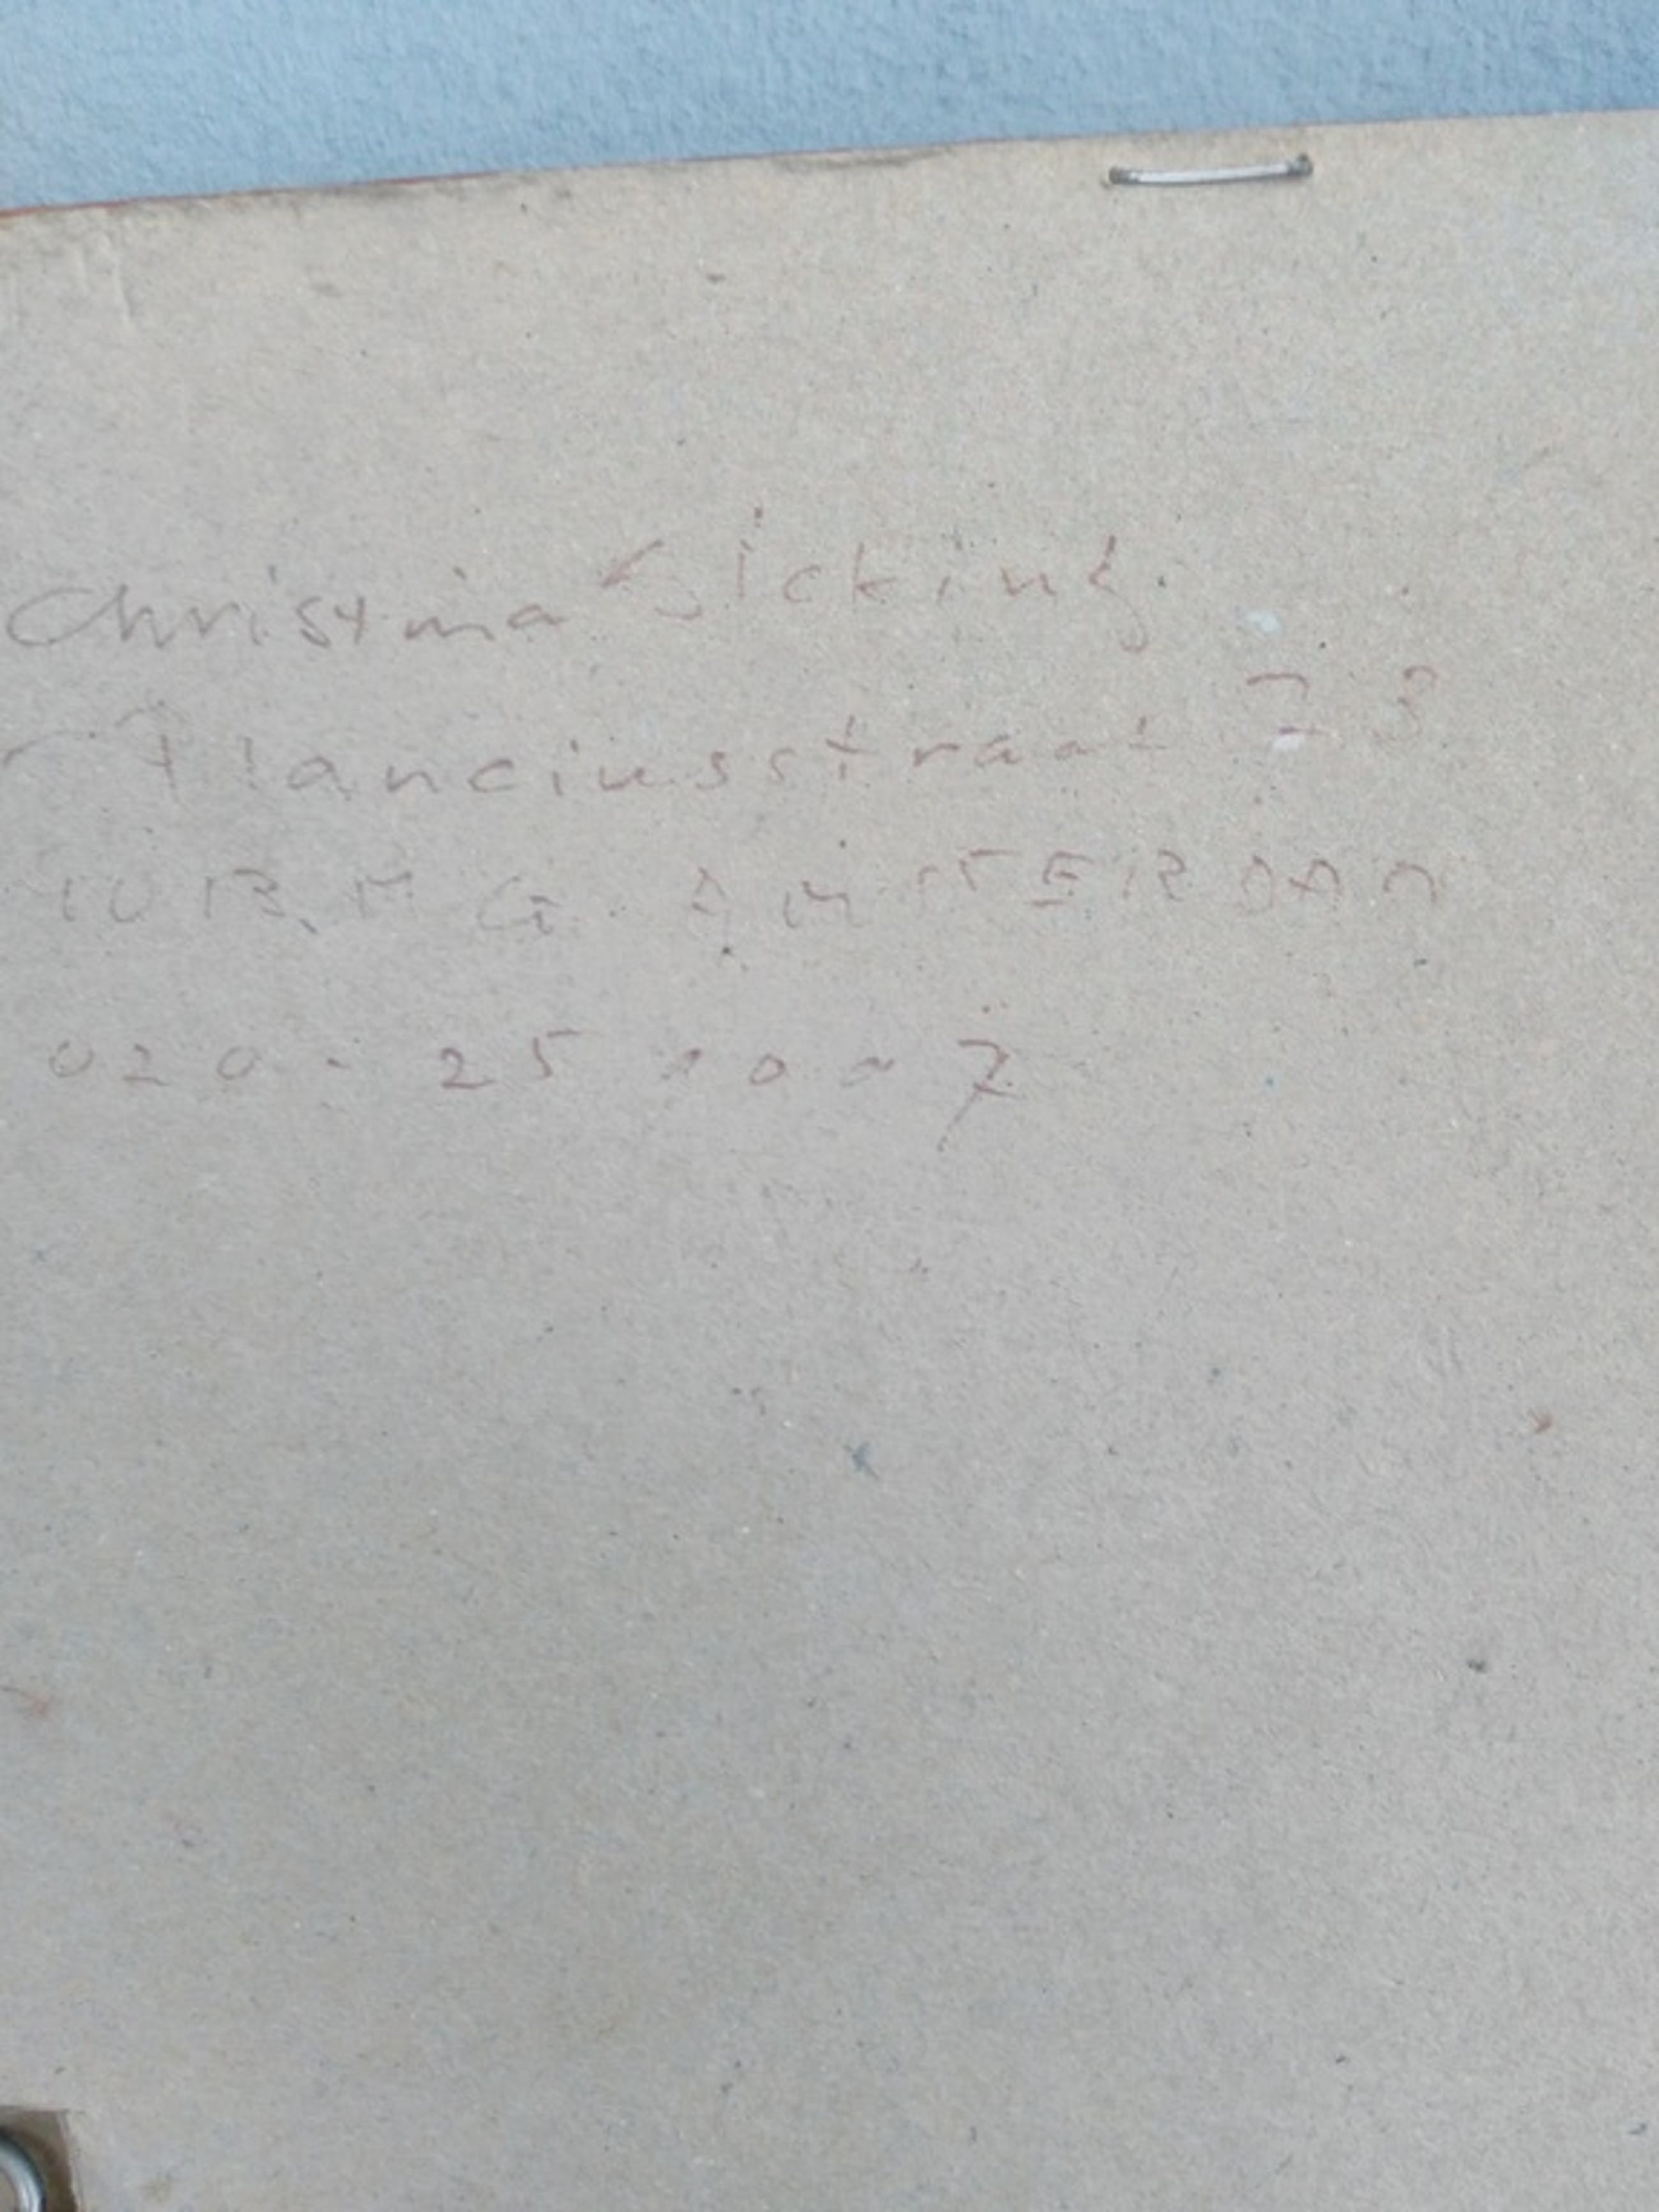 Christina Sicking.
Planciusstraat 73
1013 MG. AMSTERDAM
020-25